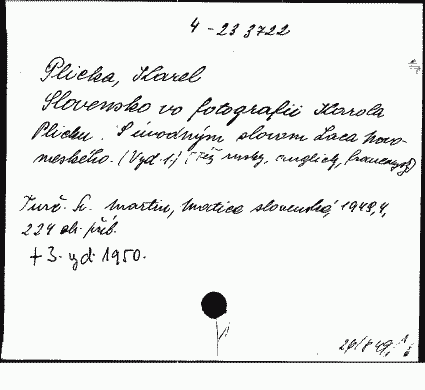 4 - 23 3722
Plicka, Karel
Slovensko vo fotografii Karola
Plicku. S úvodným slovom Laca Novo-
meského. (Vyd. 1.) Též rusky, anglicky, francouzsky)
Turč. Sv. Martin, Matica slovenská, 1949, 4,
224 ob. příl.
+ 3. vyd. 1950.